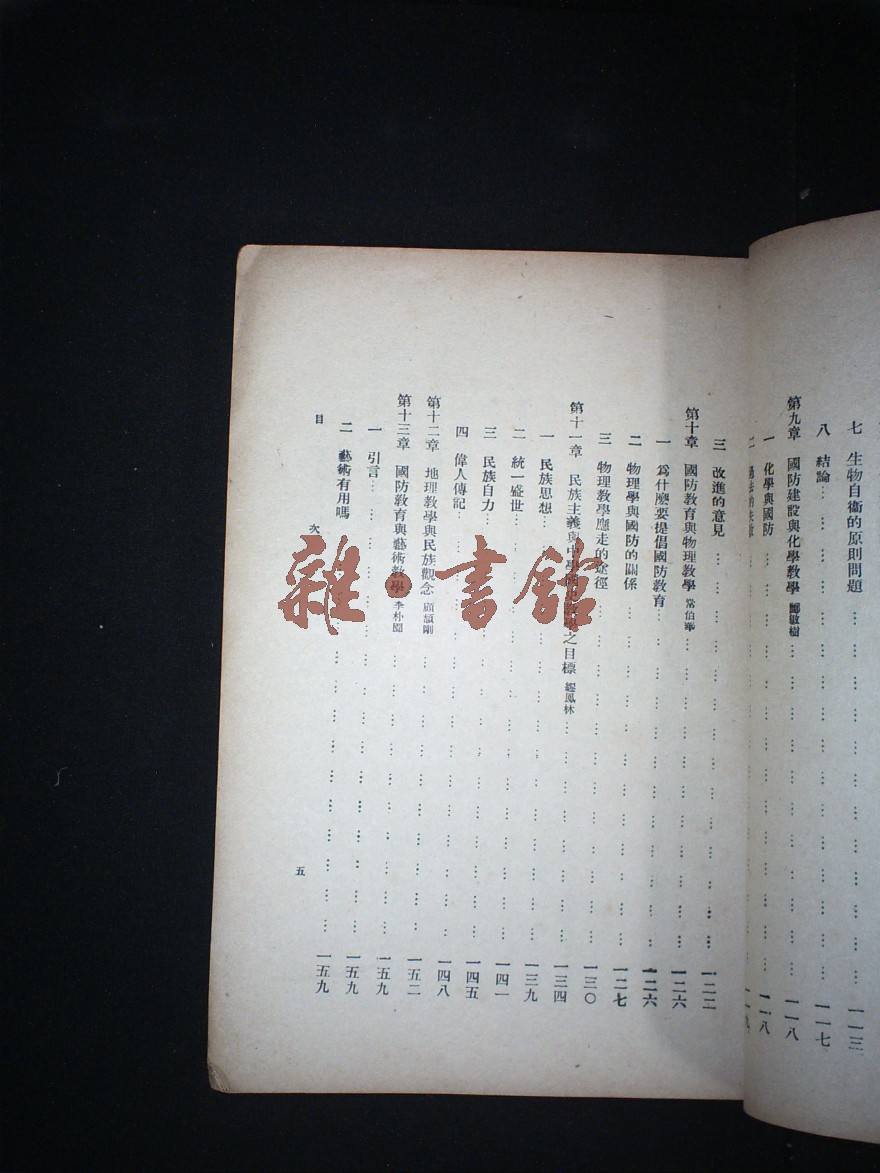 七 生物自衞的原則問題 … 一一三
八 結論 … 一一七
第九章 國防建設與化學教學 鄭敏樹 … 一一八
一 化學與國防 … 一一八
二 過去的
三 改進的意見 … 一二二
第十章 國防教育與物理教學 常伯華 … 一二六
一 爲什麼要提倡國防教育 … 一二六
二 物理學與國防的關係 … 一二七
三 物理教學應走的途徑 … 一三〇
第十一章 民族主義與中學國史教學之目標 繆鳳林 … 一三四
一 民族思想 … 一三九
二 統一盛世 … 一四一
三 民族自力 … 一四五
四 偉人傳記 … 一四八
第十二章 地理教學與民族觀念 顧頡剛 … 一五二
第十三章 國防教育與藝術教學 李朴園 … 一五九
一 引言 … 一五九
二 藝術有用嗎 … 一五九
目次 五
雜·書館